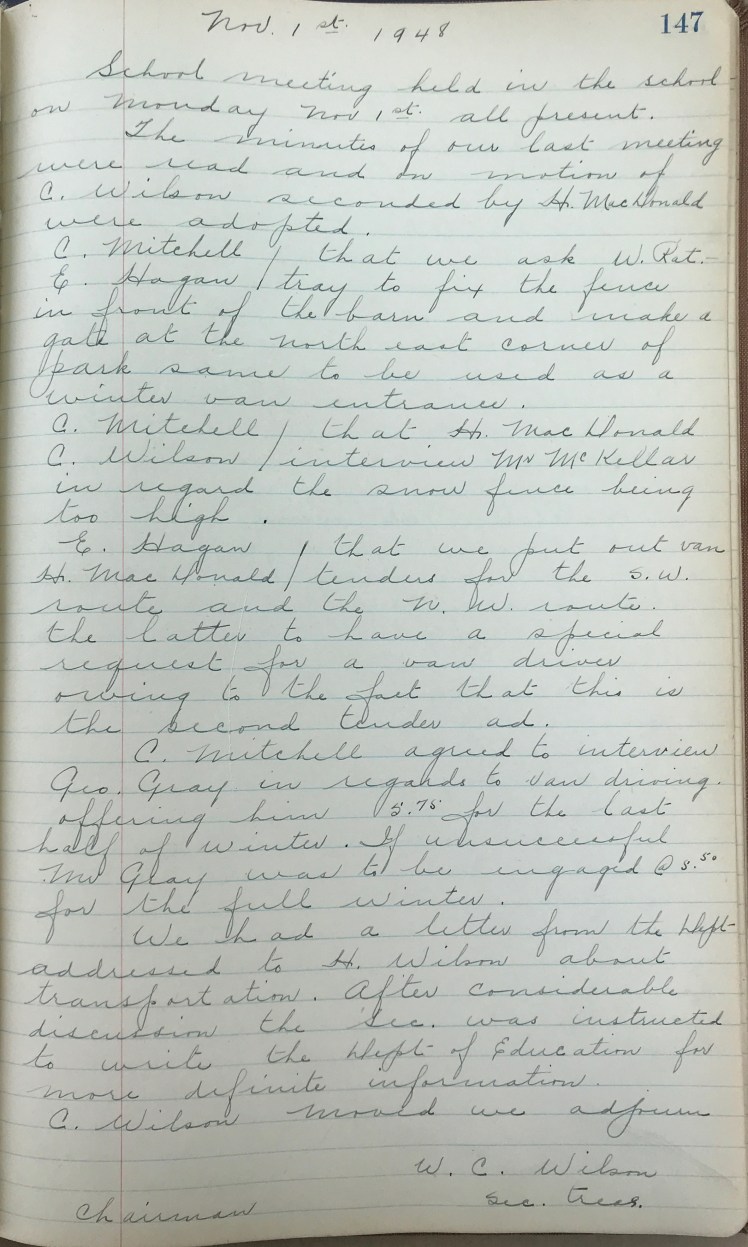 Nov. 1st. 1948
147
School meeting held in the school
on Monday Nov 1st. all present.
The minutes of our last meeting
were read and on motion of
C. Wilson seconded by H. MacDonald
were adopted.
C. Mitchell / that we ask W. Rat-
E. Hagan / tray to fix the fence
in front of the barn and make a
gate at the north east corner of
park same to be used as a
winter van entrance.
C. Mitchell / that H. MacDonald
C. Wilson / interview Mr McKellar
in regard the snow fence being
too high.
E. Hagan / that we put out van
H. MacDonald / tenders for the S.W.
route and the N.W. route.
the latter to have a special
request for a van driver
owing to the fact that this is
the second tender ad.
C. Mitchell agreed to interview
Geo. Gray in regards to van driving.
offering him 5.75 for the last
half of winter. If unsuccessful
Mr Gray was to be engaged @ .50
for the full winter.
We had a letter from the Dept-
addressed to H. Wilson about
transportation. After considerable
discussion the Sec. was instructed
to write the Dept of Education for
more definite information.
C. Wilson moved we adjourn
W. C. Wilson
Chairman Sec. Treas.